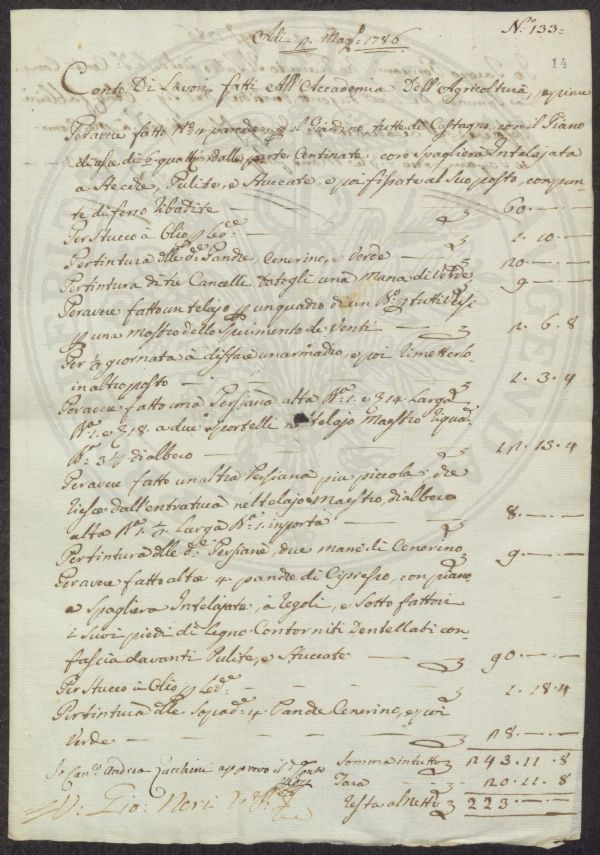 N.° 133=
14
Adi p. Mag.° 1786
Conto Di Lavori fatti All'Accademia Dell'Agricoltura,
Per avere fatto N.° 4 il Giardino tutte di Castagno, con il Piano
di ase di 6 quatt. dalle parte Centinate, con Spagliera Intelajata
a Stecche, Pulite, e Stuccate, e poi fissate al Suo posto, con pun=
te di ferro Ribadite — 60 — —
Per Stucco à Olio p Led.e — 1. 10. —
Per tintura dlle d.e Panche, Cenerino, e Verde — 20 — —
Per tintura di tre Cancelli datogli una Mana di Verde 9 — —
Per avere fatto un telajo p un quadro di
p una mostra dello de Venti — 2. 6. 8
Per ½ giornata à disfare un armadio, e poi Rimetterlo
in altro posto — 1. 3. 4
Per avere fatto una Persiana alta B.a 1. e 3/4 Larga
B.a 1. e 7/8. a due Sportelli telajo Maestro
B.e 3 ½ di albero — 12. 13. 4
Per avere fatto un altra Persiana piu piccola che
riesce dall'entratura nel telajo Maestro, di albero
alta B.a 1. ½ Larga B.a 1. importa — 8 — —
Per tintura dlle d.e Persiane, due mane di Cenerino 9 — —
Per avere fatto altre 4. panche di Cipresso, con piano
e Spagliera Intelajata, à Regoli, e Sotto fattovi
i Suoi piedi di Legno Contorniti Dentellati con
fascia davanti Pulite, e Stuccate — 90 — —
Per Stucco à Olio p Led.e — 1. 18. 4
Per tintura dlle 4. Panche Cenerine, e poi
Verde — 28 — —
Io Can.co Andrea Zucchini approvo il d.° Conto Somma in tutto 243. 11. 8
Tara 20. 11. 8
V. Gio: Neri Resta al Netto 223 — —